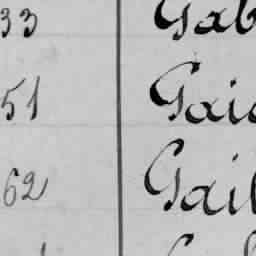 33 Gab
51 Gaid
62 Gail